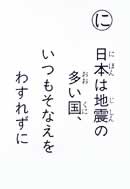 に
日本は地震の
多い国、
いつもそなえを
わすれずに